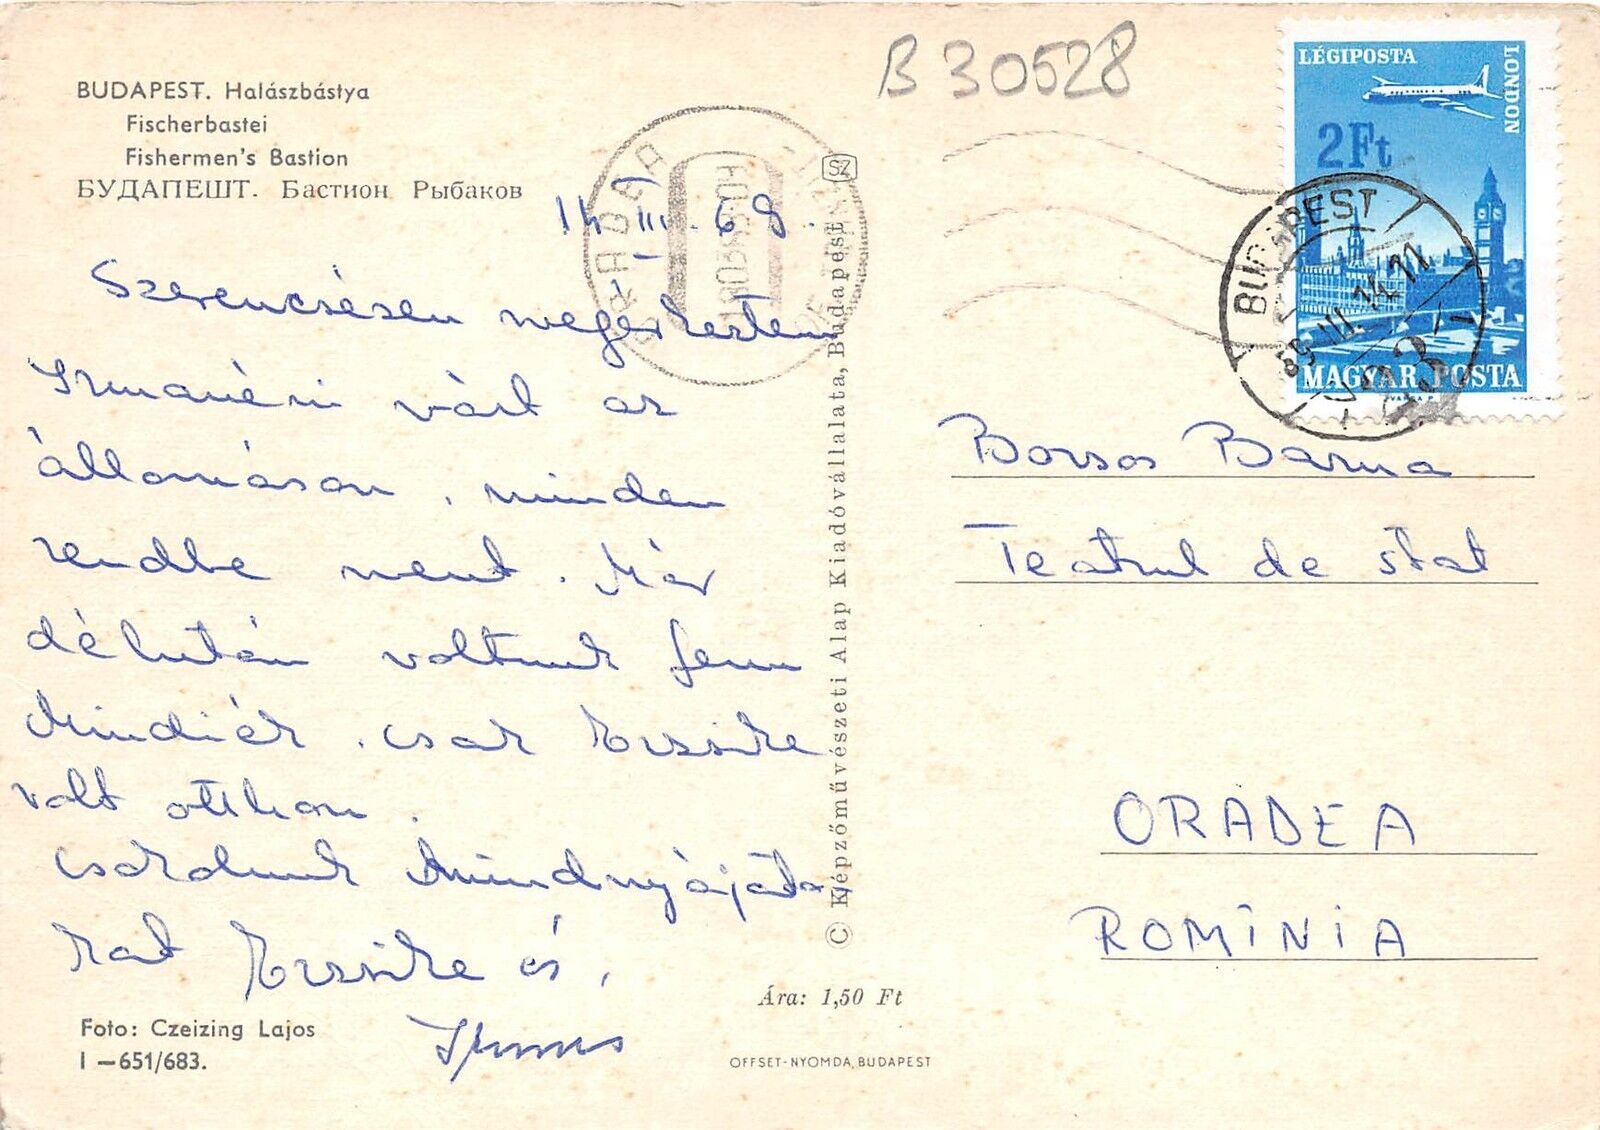 BUDAPEST. Halászbástya
Fischerbastei
Fishermen's Bastion
БУДАПЕШТ. Бастион Рыбаков
B 30528
LÉGIPOSTA
LONDON
2Ft
MAGYAR POSTA
BUDAPEST
SZ
14 III. 68.
Szerencsésen megérkeztem
Irmanéni várt az
állomáson, minden
rendbe ment. Már
délután voltunk fenn
Mindiék, csak Erzsike
volt otthon.
Csókolunk Mindnyájóto
kat Erzsike és,
© Képzőművészeti Alap Kiadóvállalata, Budapest
Borsos Barna
Teatrul de stat
ORADEA
ROMÎNIA
Ára: 1,50 Ft
Foto: Czeizing Lajos
I —651/683.
OFFSET-NYOMDA, BUDAPEST